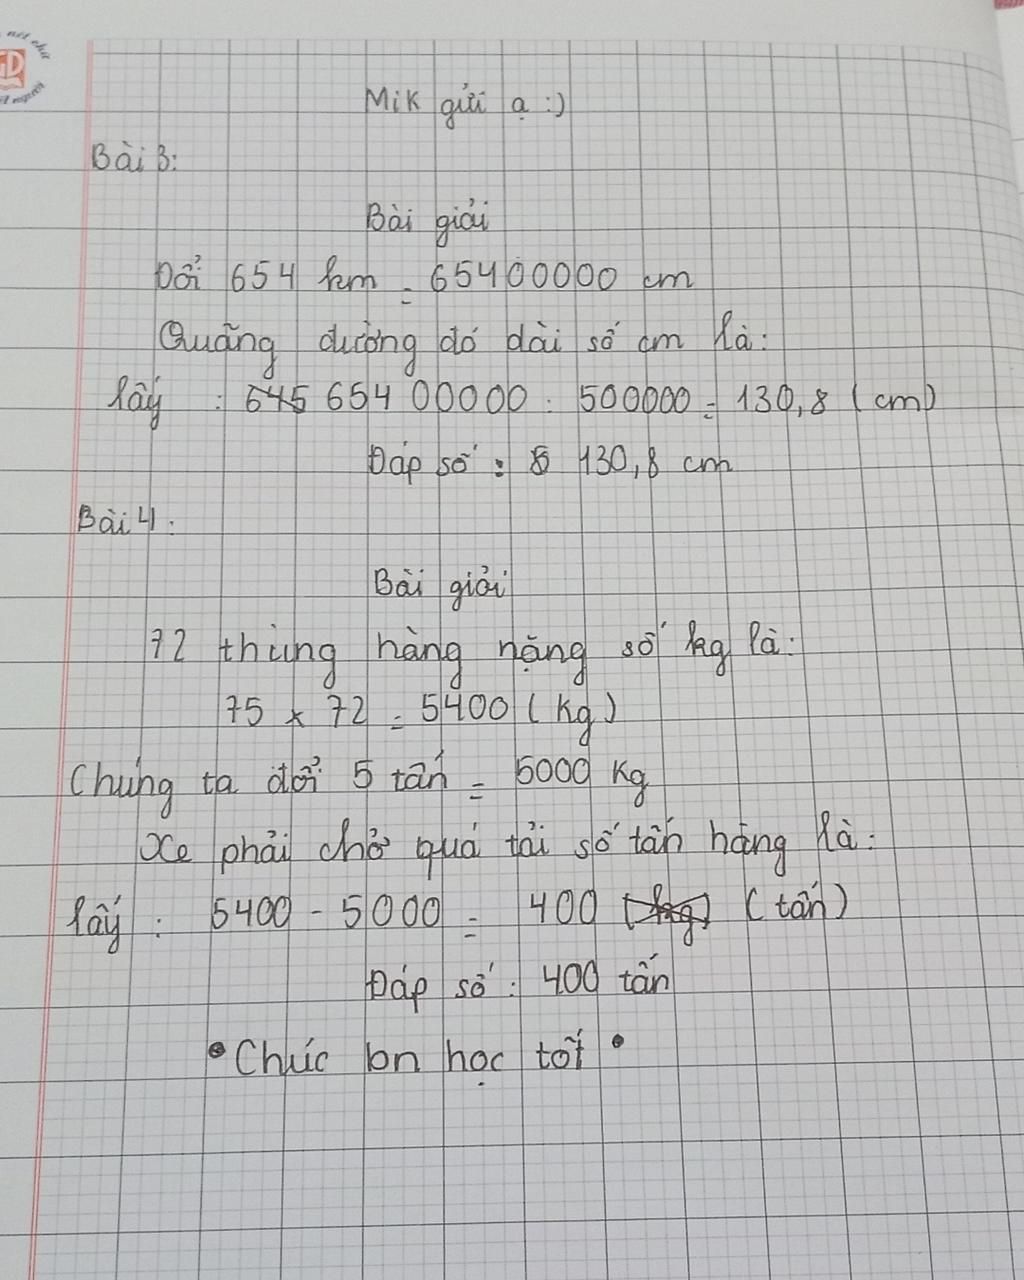 nét chữ
GD
Mik gửi ạ :)
Bài 3:
Bài giải
Đổi 654 km = 65400000 cm
Quãng đường đó dài số cm là:
lấy : 645 65400000 : 500000 = 130,8 (cm)
Đáp số : 130,8 cm
Bài 4:
Bài giải
72 thùng hàng nặng số kg là:
75 x 72 = 5400 (kg)
Chúng ta đổi 5 tấn = 5000 kg
Xe phải chở quá tải số tấn hàng là:
lấy : 5400 - 5000 = 400 (kg) (tấn)
Đáp số : 400 tấn
• Chúc bn học tốt •